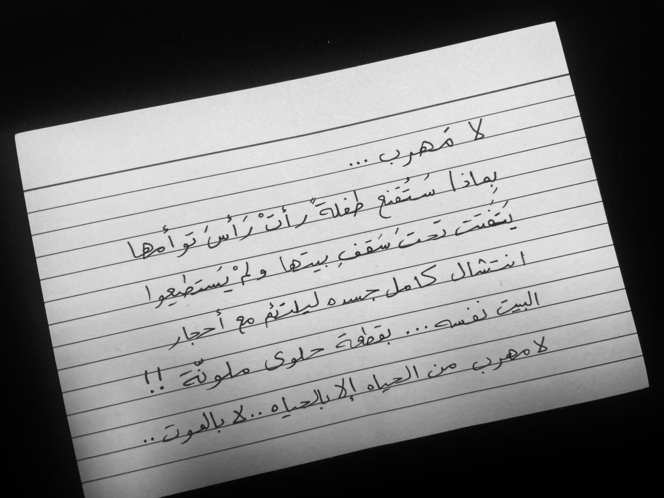 لا مَهرب ...
بِماذا سَتُقنع طفلةً رأتْ رَأسَ تَوأمها
يَتَفتت تحتَ سَقفِ بيتها ولمْ يَستطيعوا
انتشال كامل جسده ليلتئم مع أحجار
البيت نفسه ... بقطعة حلوى ملونّة !!
لا مهرب من الحياه إلا بالحياه .. لا بالموت ..